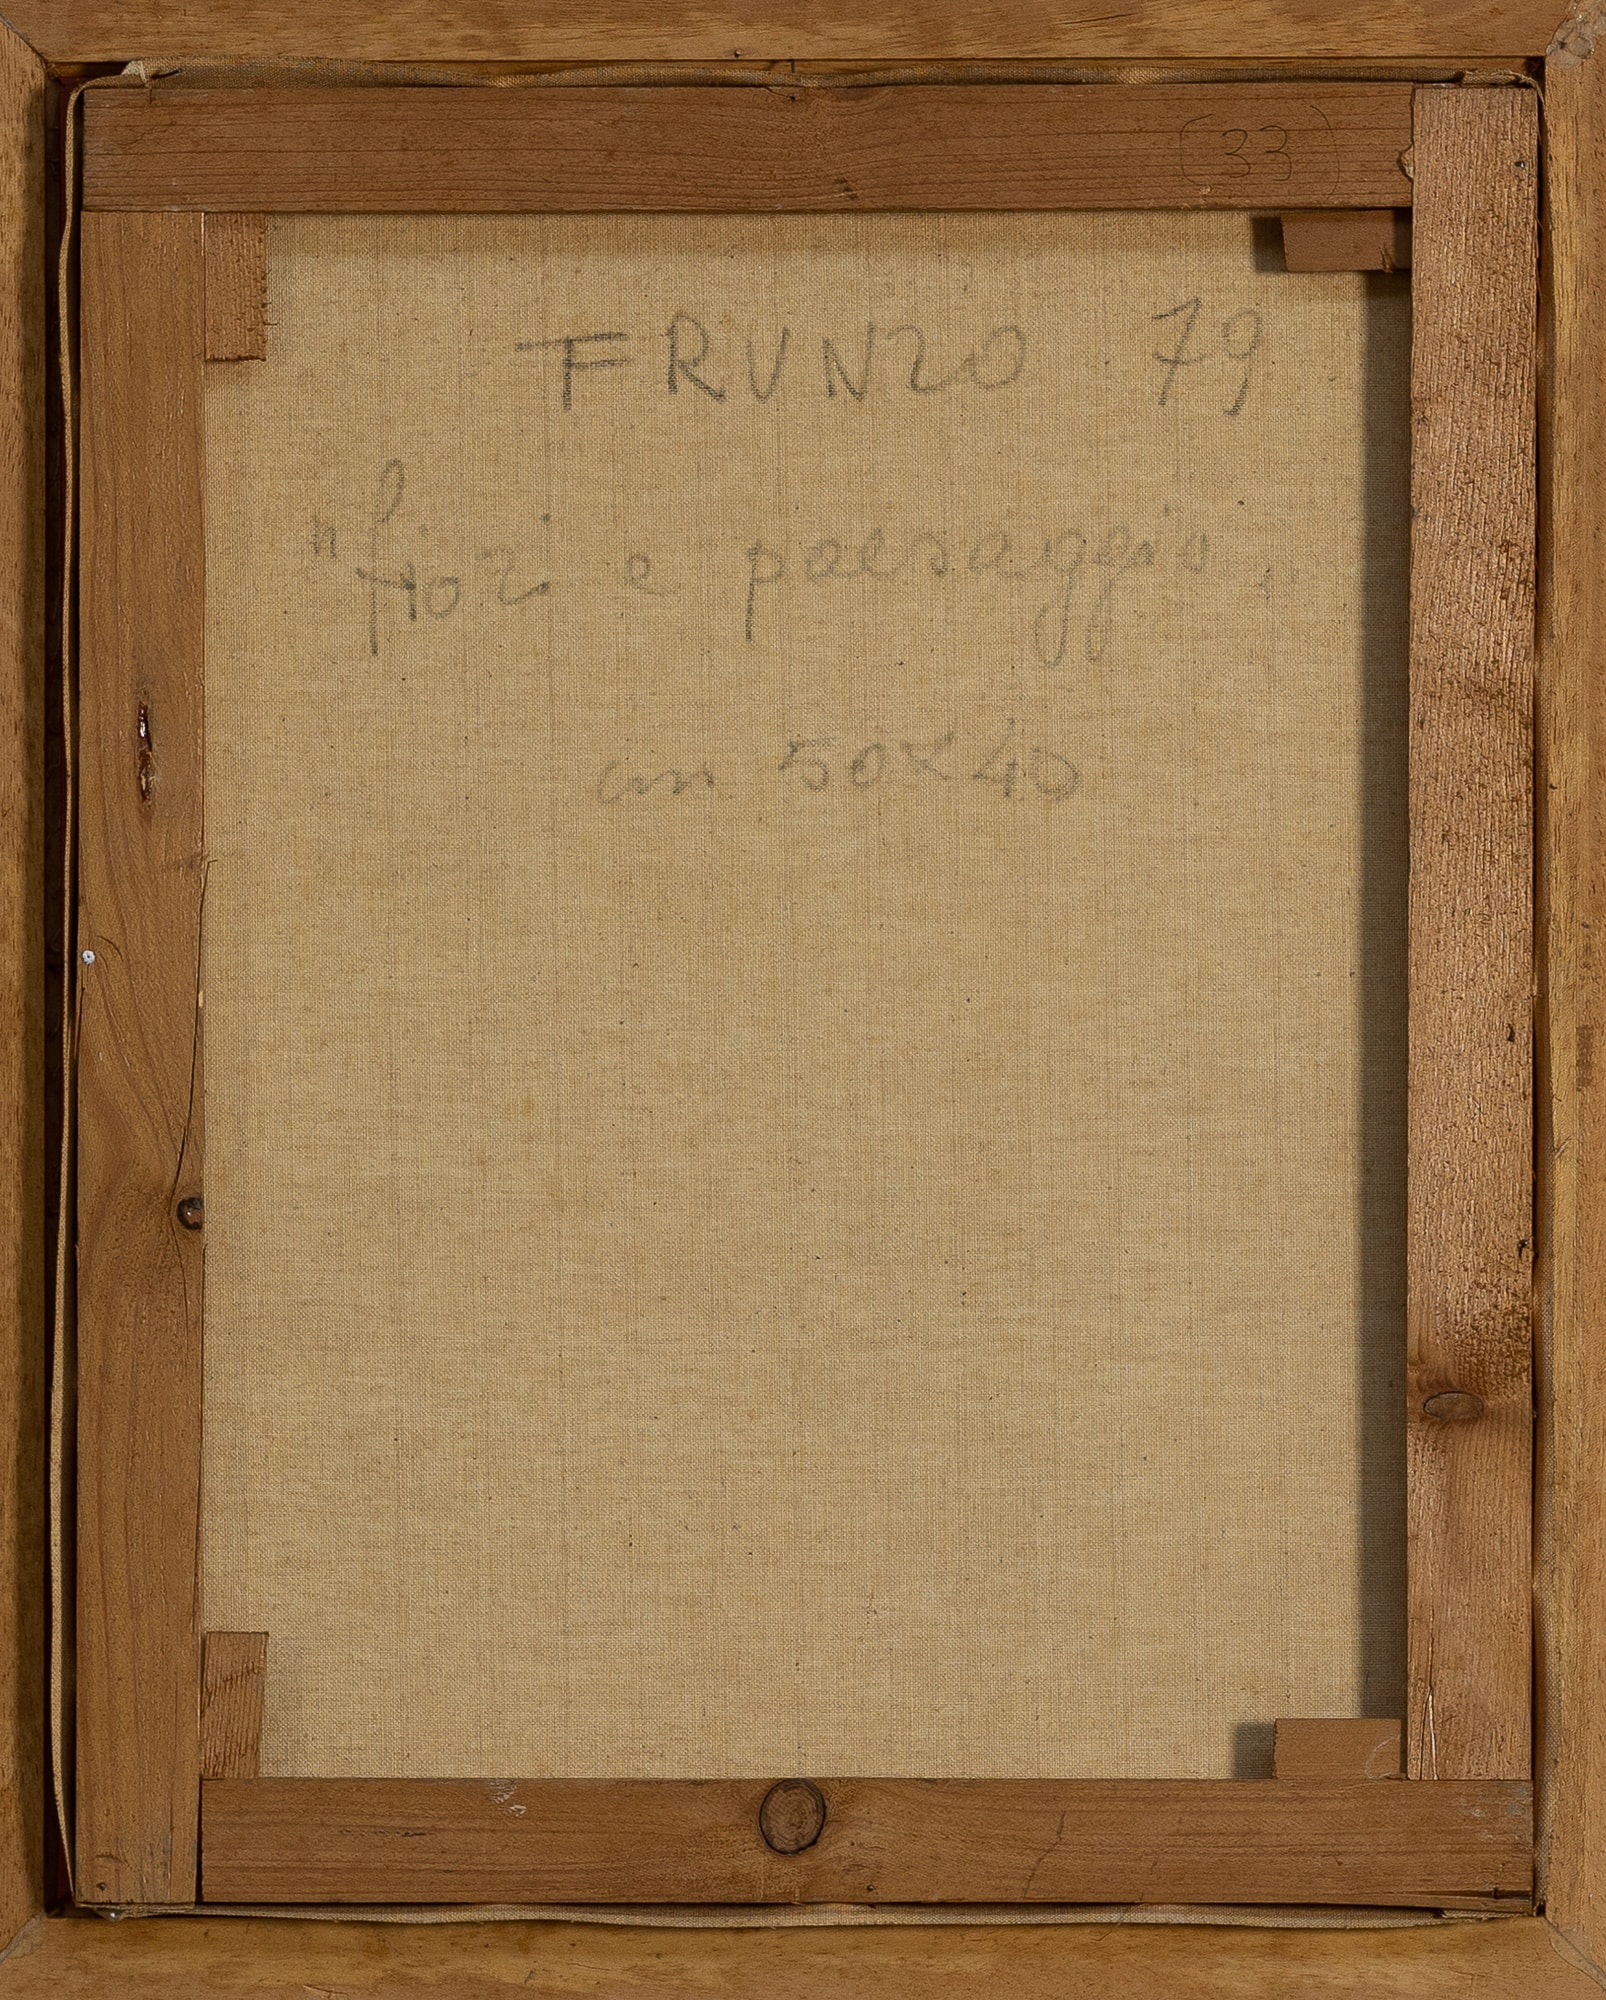 (33)
FRUNZO 79
"fiori e paesaggio"
cm 50×40